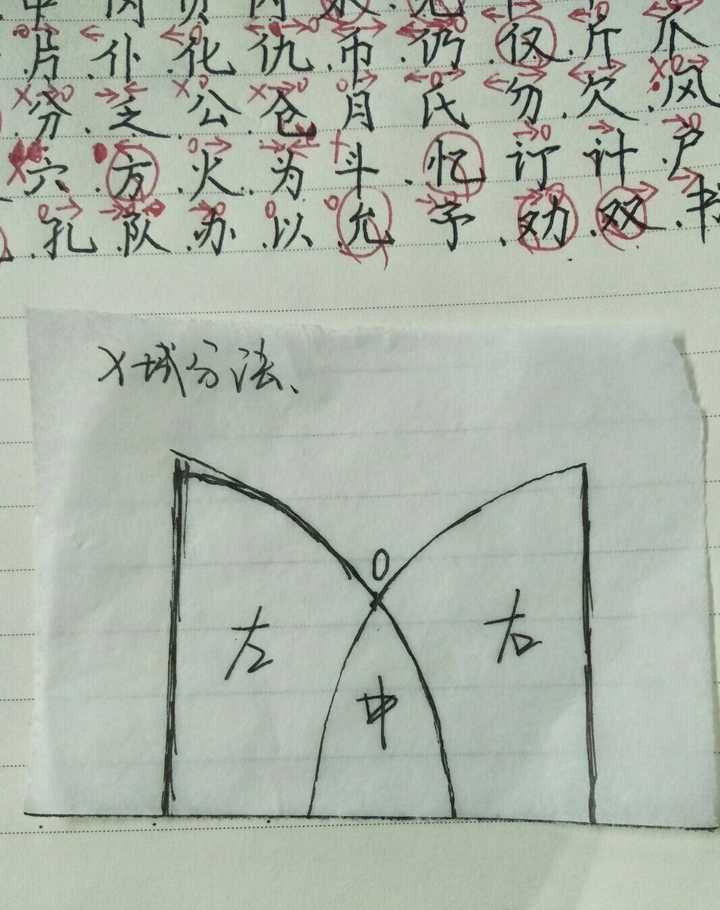 片.仆.化.仇.币.仍.仅.斤.爪
.分.乏.公.仓.月.氏.勿.欠.风
.穴.方.火.为.斗.忆.订.计.户
.孔.队.办.以.允.予.劝.双.书
X域分法、
O
左 右
中